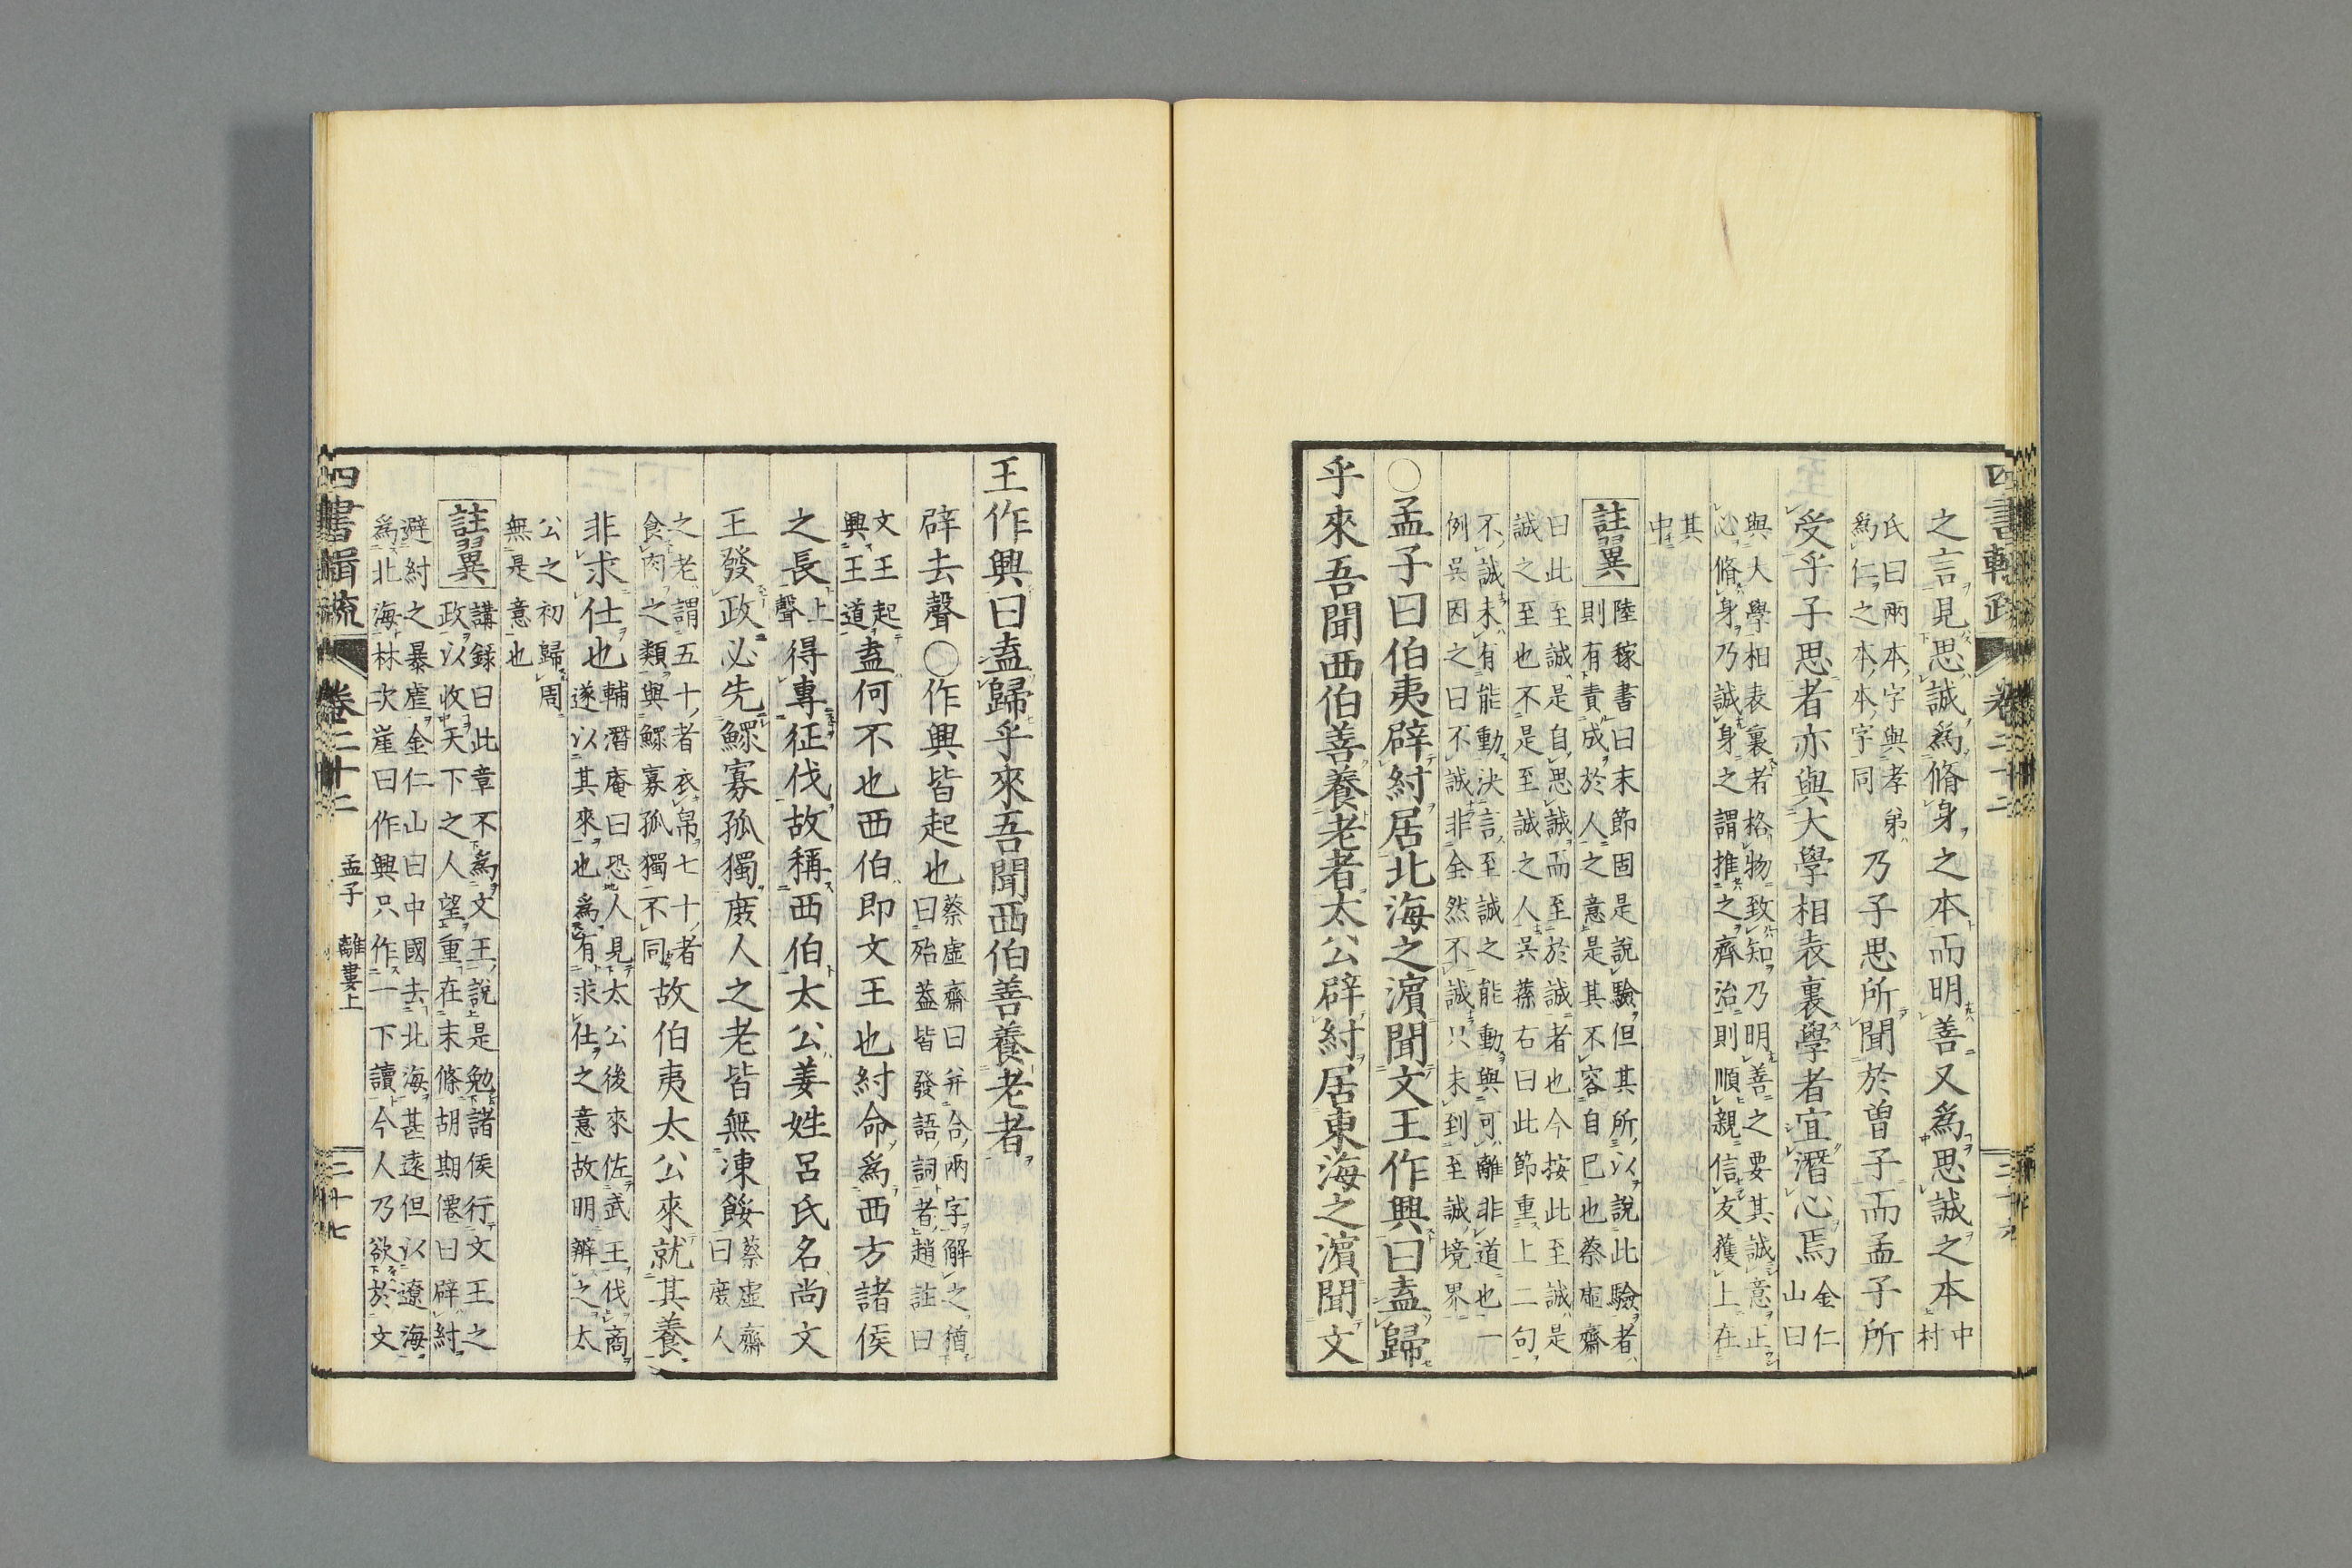 之言見思誠為脩身之本而明善又為思誠之本中村
氏曰兩本字與孝弟
為仁之本本字同
乃子思所聞於曾子而孟子所
受乎子思者亦與大學相表裏學者宜潛心焉金仁山曰
與大學相表裏者格物致知乃明善之要其誠意正
心脩身乃誠身之謂推之齊治則順親信友獲上在
其
中
註翼
陸稼書曰末節固是說驗但其所以說此驗者
則有責成於人之意是其不容自已也蔡虛齋
曰此至誠是自思誠而至於誠者也今按此至誠是
誠之至也不是至誠之人吳蓀右曰此節重上二句
不誠未有能動決言至誠之能動與可離非道也一
例吳因之曰不誠非全然不誠只未到至誠境界
○孟子曰伯夷辟紂居北海之濱聞文王作興曰盍歸
乎來吾聞西伯善養老者太公辟紂居東海之濱聞文
王作興曰盍歸乎來吾聞西伯善養老者
辟去聲○作興皆起也蔡虛齋曰并合兩字解之猶
曰殆蓋皆發語詞者趙註曰
文王起
興王道
盍何不也西伯即文王也紂命為西方諸侯
之長上聲得專征伐故稱西伯太公姜姓呂氏名尚文
王發政必先鰥寡孤獨庶人之老皆無凍餒蔡虛齋
曰庶人
之老謂五十者衣帛七十者
食肉之類與鰥寡孤獨不同
故伯夷太公來就其養
非求仕也輔潛庵曰恐人見太公後來佐武王伐商
遂以其來也為有求仕之意故明辨之太
公之初歸周
無是意也
註翼
講錄曰此章不為文王說是勉諸侯行文王之
政以收天下之人望重在末條胡期僊曰辟紂
避紂之暴虐金仁山曰中國去北海甚遠但以遼海
為北海林次崖曰作興只作一下讀今人乃欲於文
四書輯疏
卷二十二
孟子
離婁上
二十七